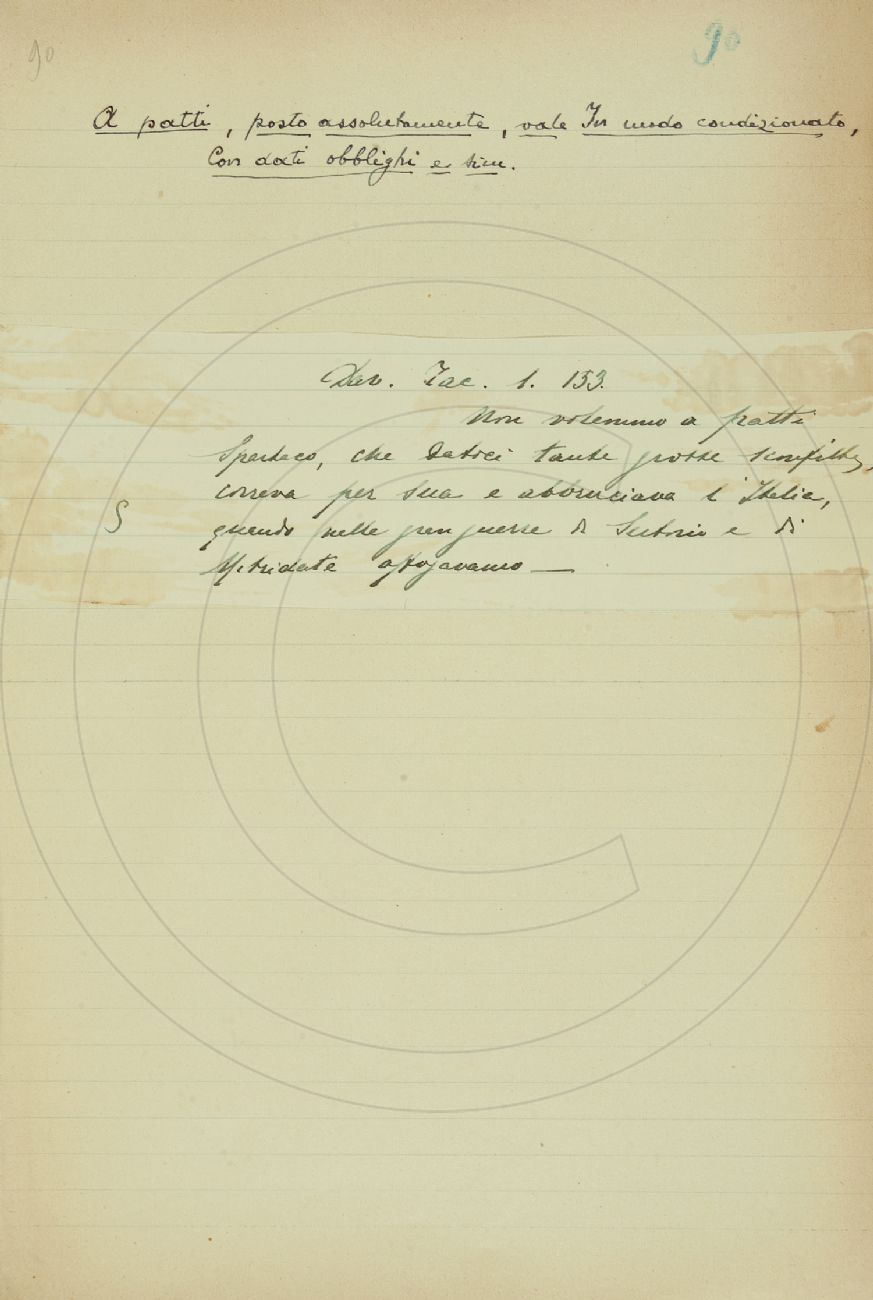 90 90
A patti, posto assolutamente, vale In modo condizionato,
Con dati obblighi e sim.
Dav. Tac. 1. 153.
Non volemmo a patti
Spartaco, che datoci tante grosse sconfitte,
correva per sua e abbruciava l'Italia,
S quando nelle gran guerre di Sertorio e di
Mitridate affogavamo —